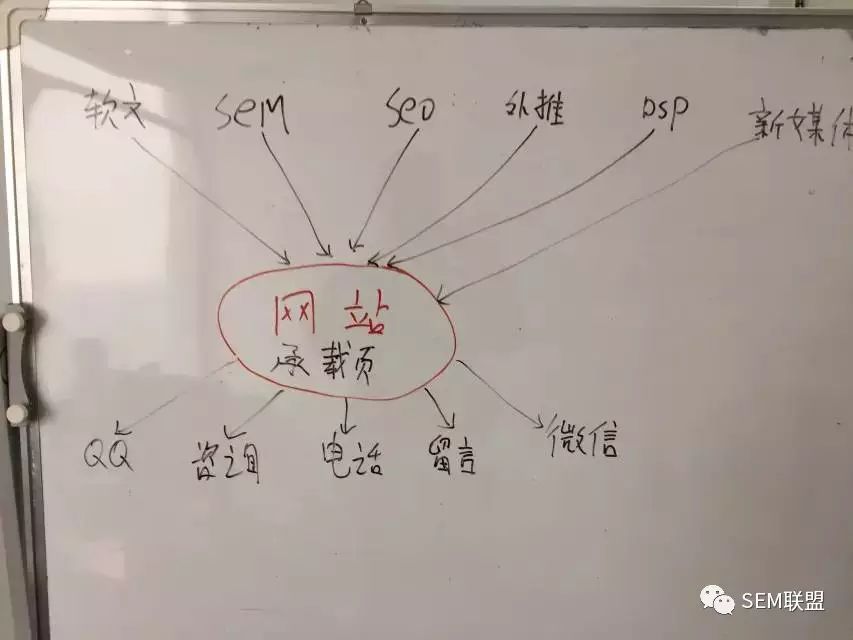 软文 SEM SEO 外推 DSP 新媒体
网站
承载页
QQ 咨询 电话 留言 微信
SEM联盟